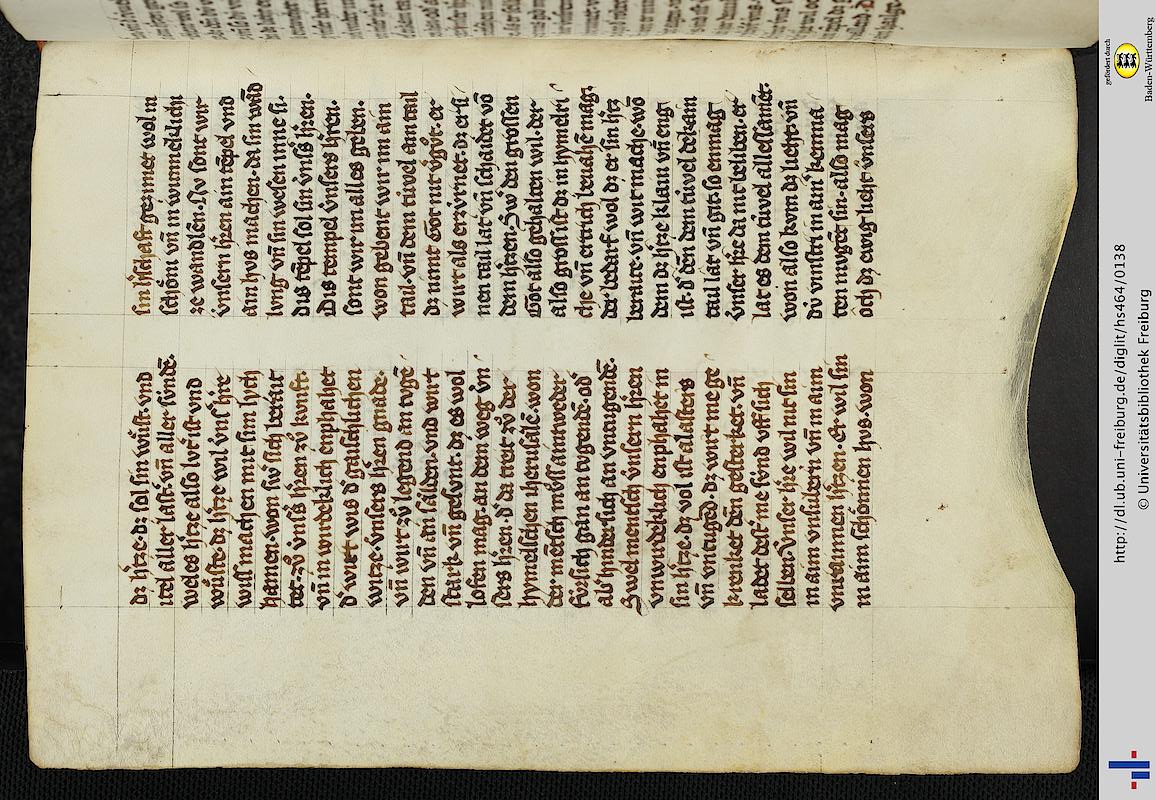 dz h'tze · dz sol sin wůst · vnd
itel aller last · vn̄ aller sundē ·
weles h'tze also lut' ist vnd
wůste · dz h'tze wil vns' h're
wiss machen mit sim lych
hamen · won siv sich berait
tet · zů vns's h'ren zů kunft ·
vn̄ in wirdeklich enphahet
d' wirt wis d' gaischlichen
witze · vnsers h'ren gnade ·
vn̄ wirt zů legend an tvgē
den vn̄ an sälden · vnd wirt
stark · vn̄ gesvnt · dz es wol
lofen mag · an dem weg · vn
sers h'ren · d' da trett zů der
hymelschen iherusalē · won
der mēsch můss aintweder
fúrsich gan an tvgendē · od'
ab' hindersich an vntugendē ·
Swel mentsch vnsern h'ren
vnwirdeklich enphahet in
sin h'tze · dz vol ist · alasters
vn̄ vntugēd · dz wirt me ge
krenket dēn gesterket · vn̄
ladet dest me súnd vff sich
selben · Vnser h're wil nit sin
in aim vnsubern vn̄ in aim
vnrainen h'tzen · Er wil sin
in aim schönen hvs · won
sin h'schaft gezimet wol in
schöni vn̄ in wunneklichi
ze wandlen · Nv sont wir
vnserm h'ren ain tēpel vnd
ain hvs machen · da sin wād
lvng vn̄ sin wesen inne si ·
Dis tēpel sol sin vns's h'ren ·
Dis tempel vnsers h'ren ·
sont wir im alles geben ·
won gebent wir im ain
tail · vn̄ dem tiuvel ain tail
da nimt Got nit vgvt · er
wirt als erzvrnet · dz er si
nen tail lat vn̄ schaidet vō
dem h'tzen · Sw' den grossen
Got also gehalten wil · der
also gross ist · dz in hymelri
che vn̄ ertrich begrife mag ·
der bedarf wol dz er sin h'tz
beraite · vn̄ wit mache · wō
dem dz h'tze klain vn̄ eng
ist · d' den dem tiuvel dekain
tail lat vn̄ git · so enmag
vnser h're da nit beliben · er
lat es dem túvel allessamēt ·
won also kvm dz liecht · vn̄
dv vinstri in ain' kemna
ten mvgent sin · also mag
öch dz ewig liecht vnsers
gefördert durch
Baden-Württemberg
http://dl.ub.uni-freiburg.de/diglit/hs464/0138
© Universitätsbibliothek Freiburg